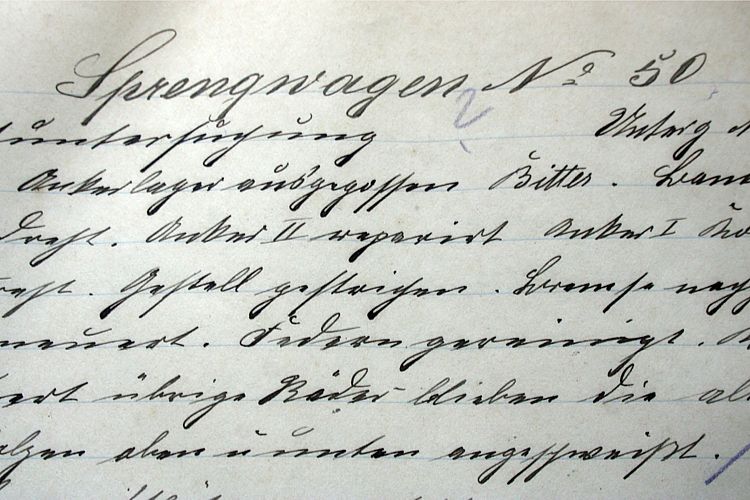 Sprengwagen No 50
untersuchung 2 Unterg
Ankerlager ausgegossen Bitter.
dreht. Anker II repariert Anker I
Gestell gestrichen. Bremse nach
neuert. Federn gereinigt.
übrige Räder blieben die al
olzen oben u unten angeschweißt.